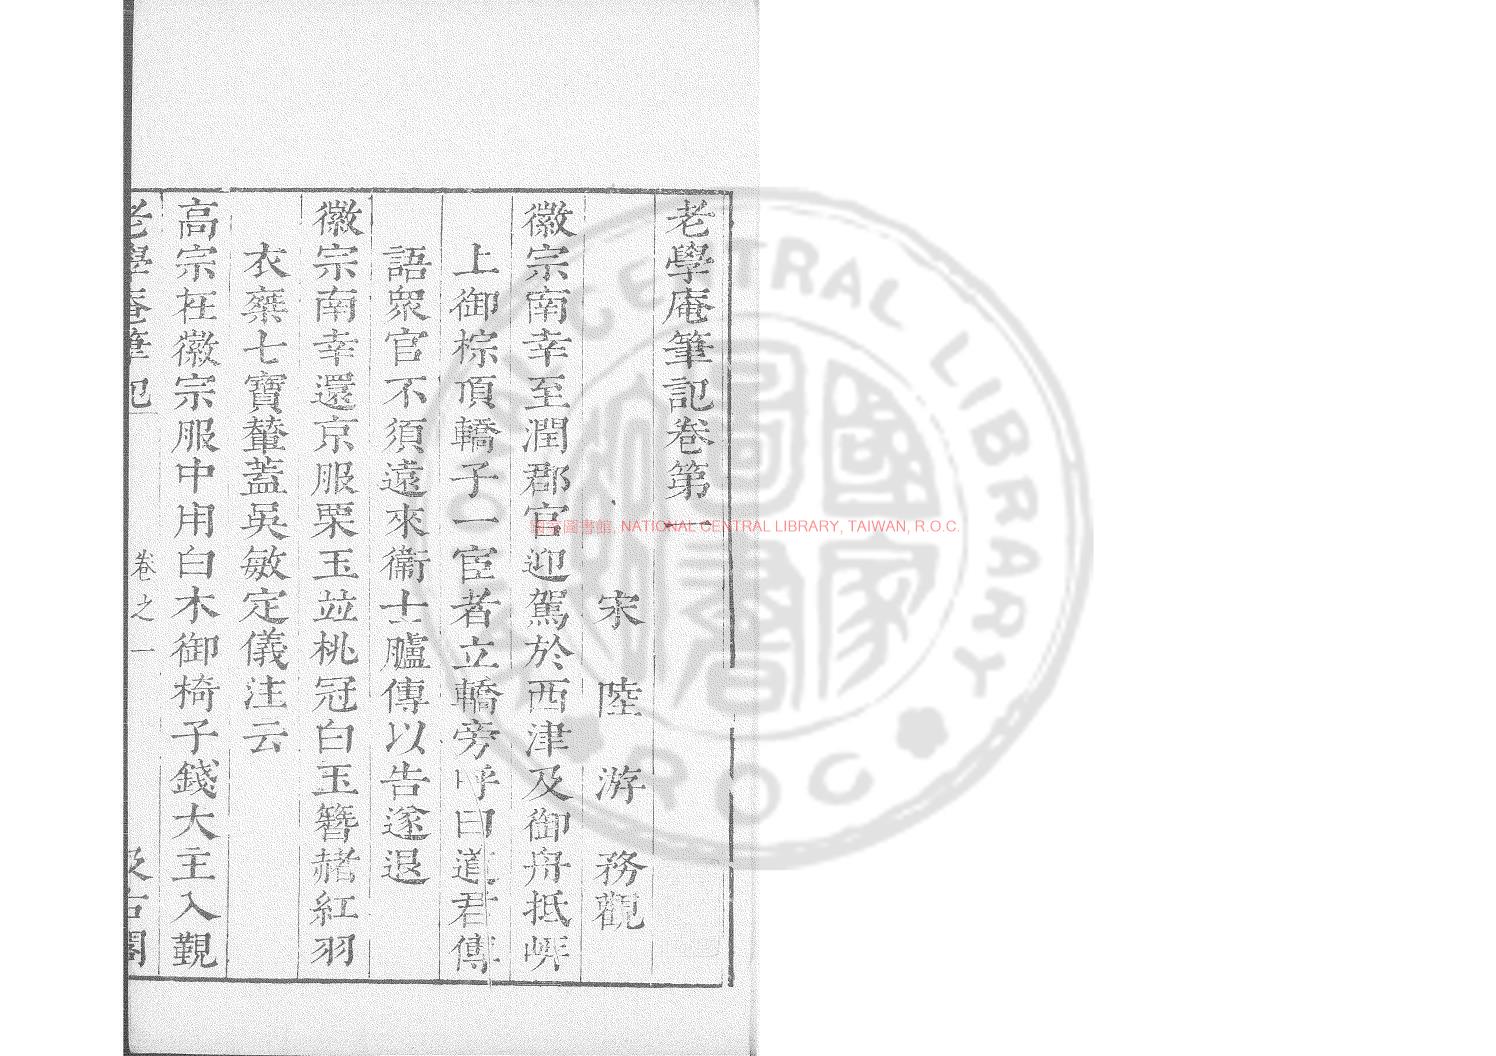 老學庵筆記卷第一
宋 陸 游 務觀
徽宗南幸至潤郡官迎駕於西津及御舟抵岸
上御棕頂轎子一宦者立轎旁呼曰道君傳
語衆官不須遠來衞士臚傳以告遂退
徽宗南幸還京服栗玉並桃冠白玉簪赭紅羽
衣乘七寶輦蓋吳敏定儀注云
高宗在徽宗服中用白木御椅子錢大主入覲
老學庵筆記 卷之一 汲古閣
國家圖書館, NATIONAL CENTRAL LIBRARY, TAIWAN, R.O.C.
CENTRAL LIBRARY
ROC
國家圖書